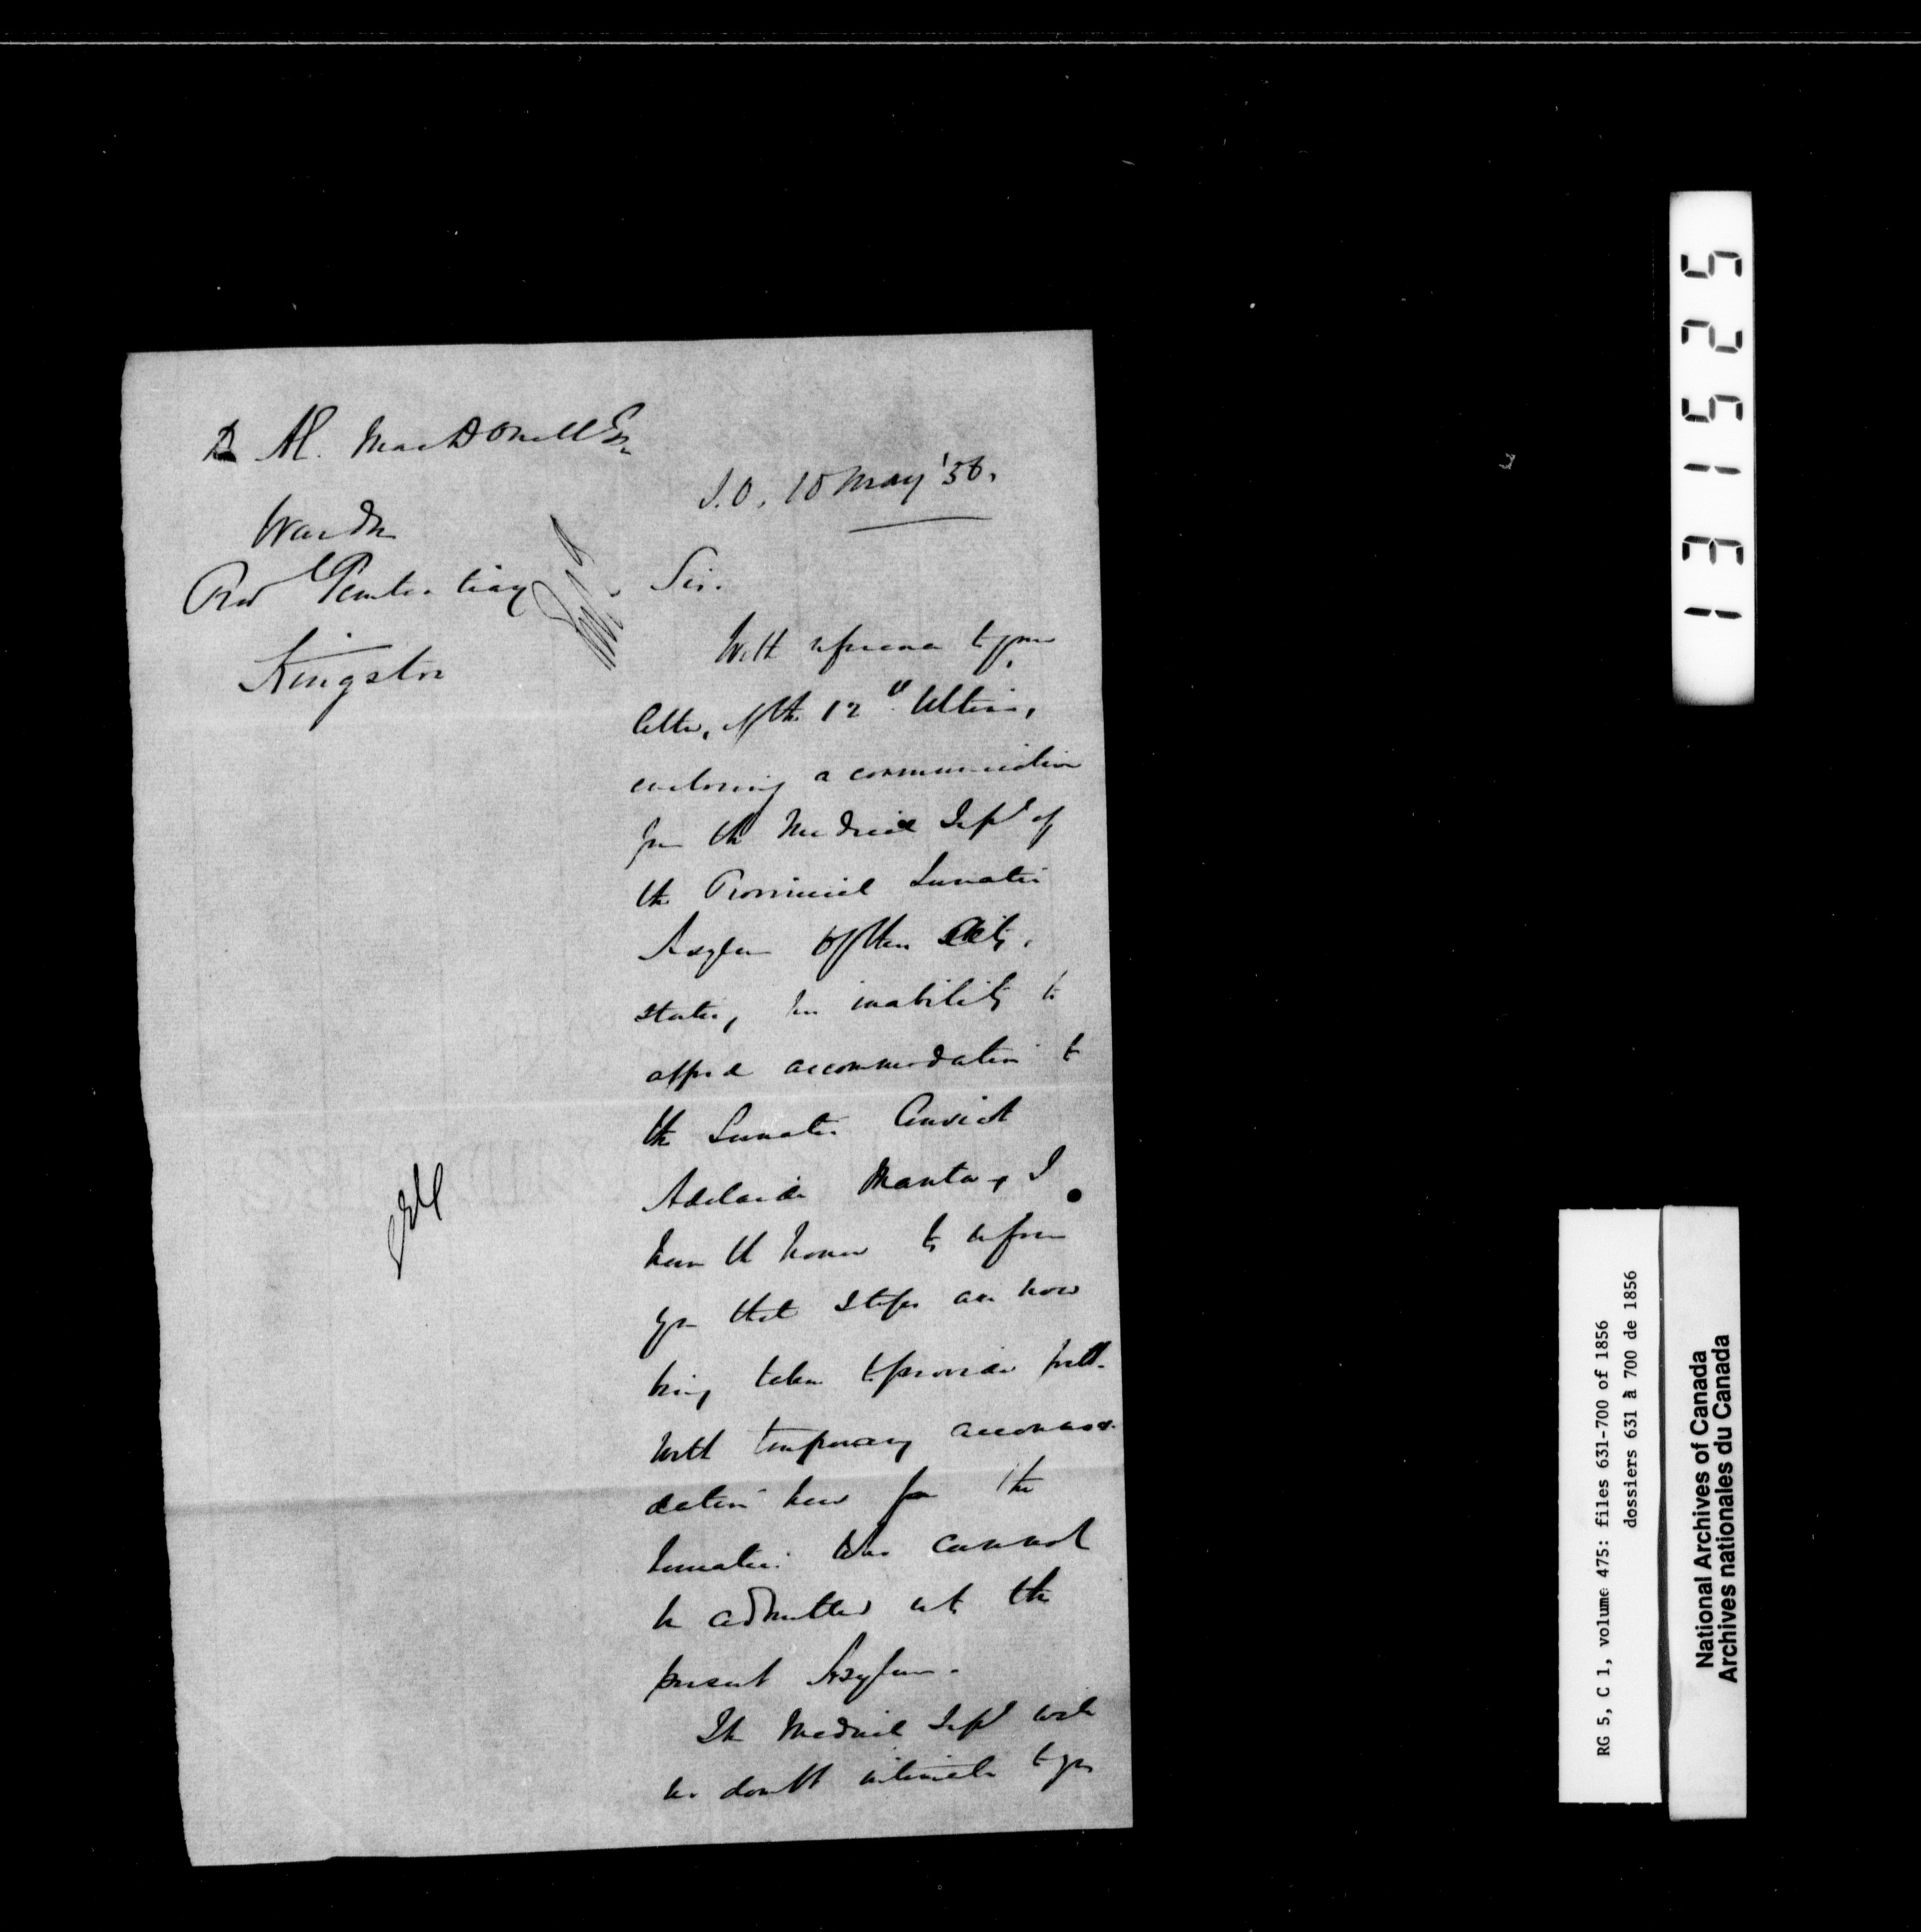 D Æ. MacDonell Esq
Warden
Prov.l Penitentiary
Kingston
S.O. 10 May '56.
Sir.
With reference to your
letter, of the 12th Ultimo,
enclosing a communication
from the Medical Supt of
the Provincial Lunatic
Asylum of this City,
stating his inability to
afford accommodation to
the Lunatic Convict
Adelaide I
have the honor to inform
you that steps are now
being taken to provide forth-
with temporary accommo-
dation here for the
lunatics who cannot
be admitted into the
present Asylum.
The Medical Supt will
no doubt intimate to you
131525
RG 5, C 1, volume 475: files 631-700 of 1856
dossiers 631 à 700 de 1856
National Archives of Canada
Archives nationales du Canada